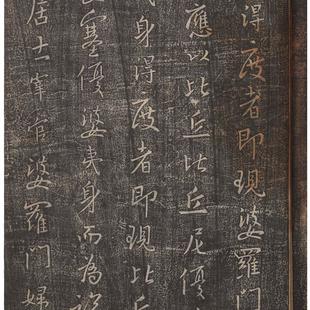 得度者即現婆羅門
應以比丘比丘尼優
夷身得度者即現比丘
塞優婆夷身而為說
居士宰官婆羅門婦